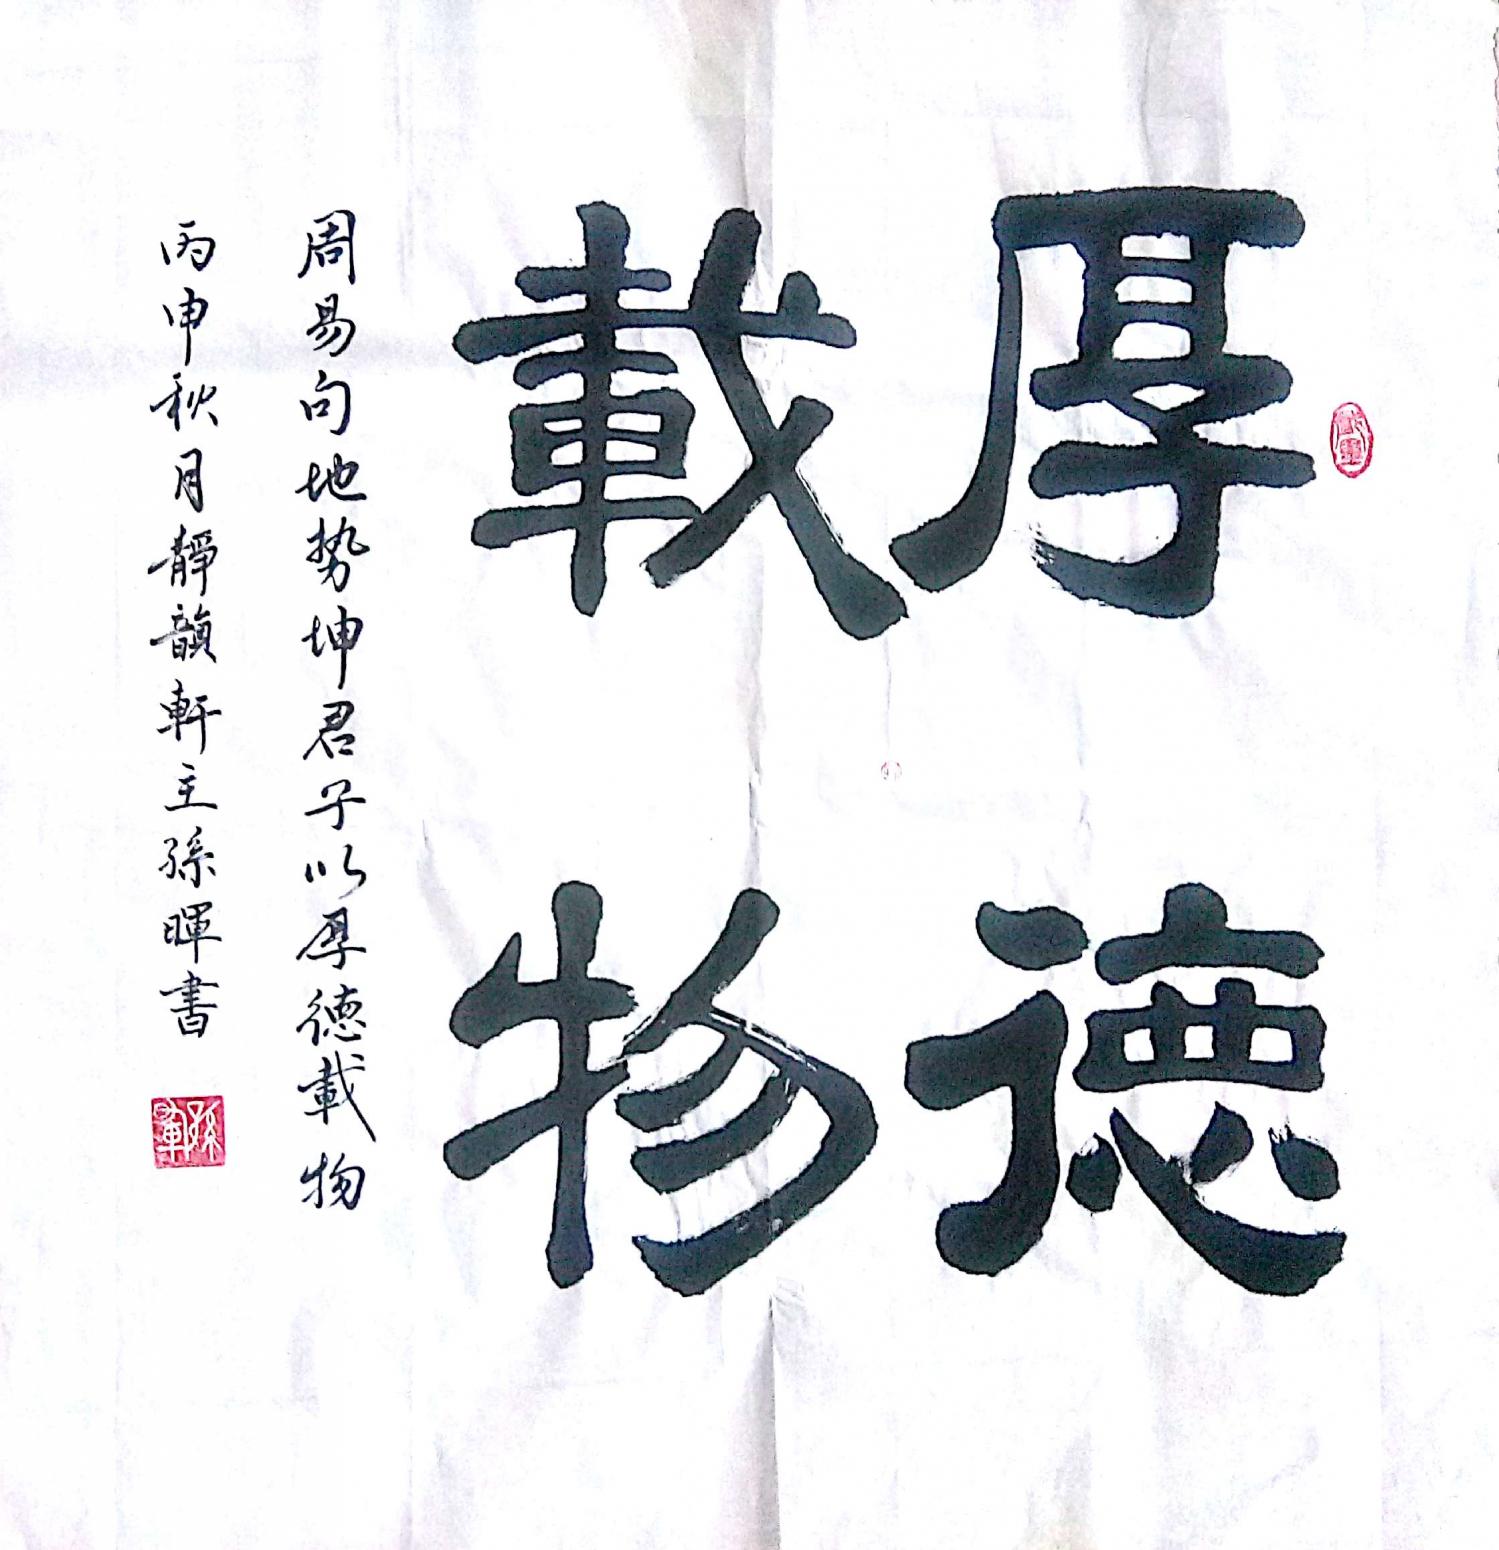 厚德
載物
周易句地势坤君子以厚德載物
丙申秋月靜韻軒主孫暉書
孫暉